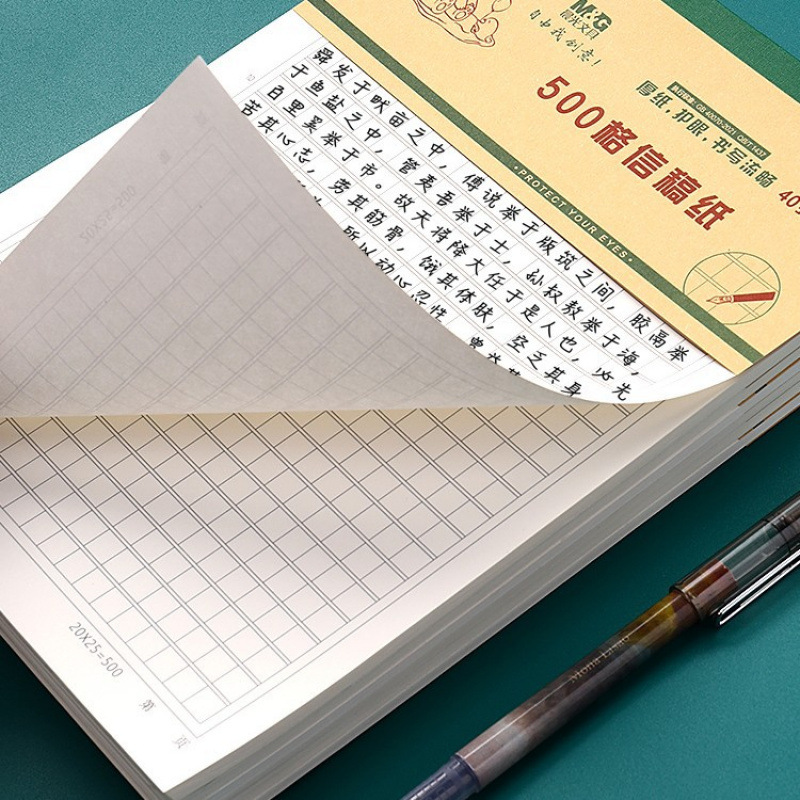 M&G
晨光文具
自由我创意!
执行标准: GB 40070-2021
厚纸,护眼,书写流畅
500格信稿纸
·PROTECT YOUR EYES·
舜发于畎亩之中,傅说举于版筑之间,胶鬲举
于鱼盐之中,管夷吾举于士,孙叔敖举于海,
百里奚举于市。故天将降大任于是人也,必先
苦其心志,劳其筋骨,饿其体肤,空乏其身
所以动心忍性,曾益其
20X25=500
第 页